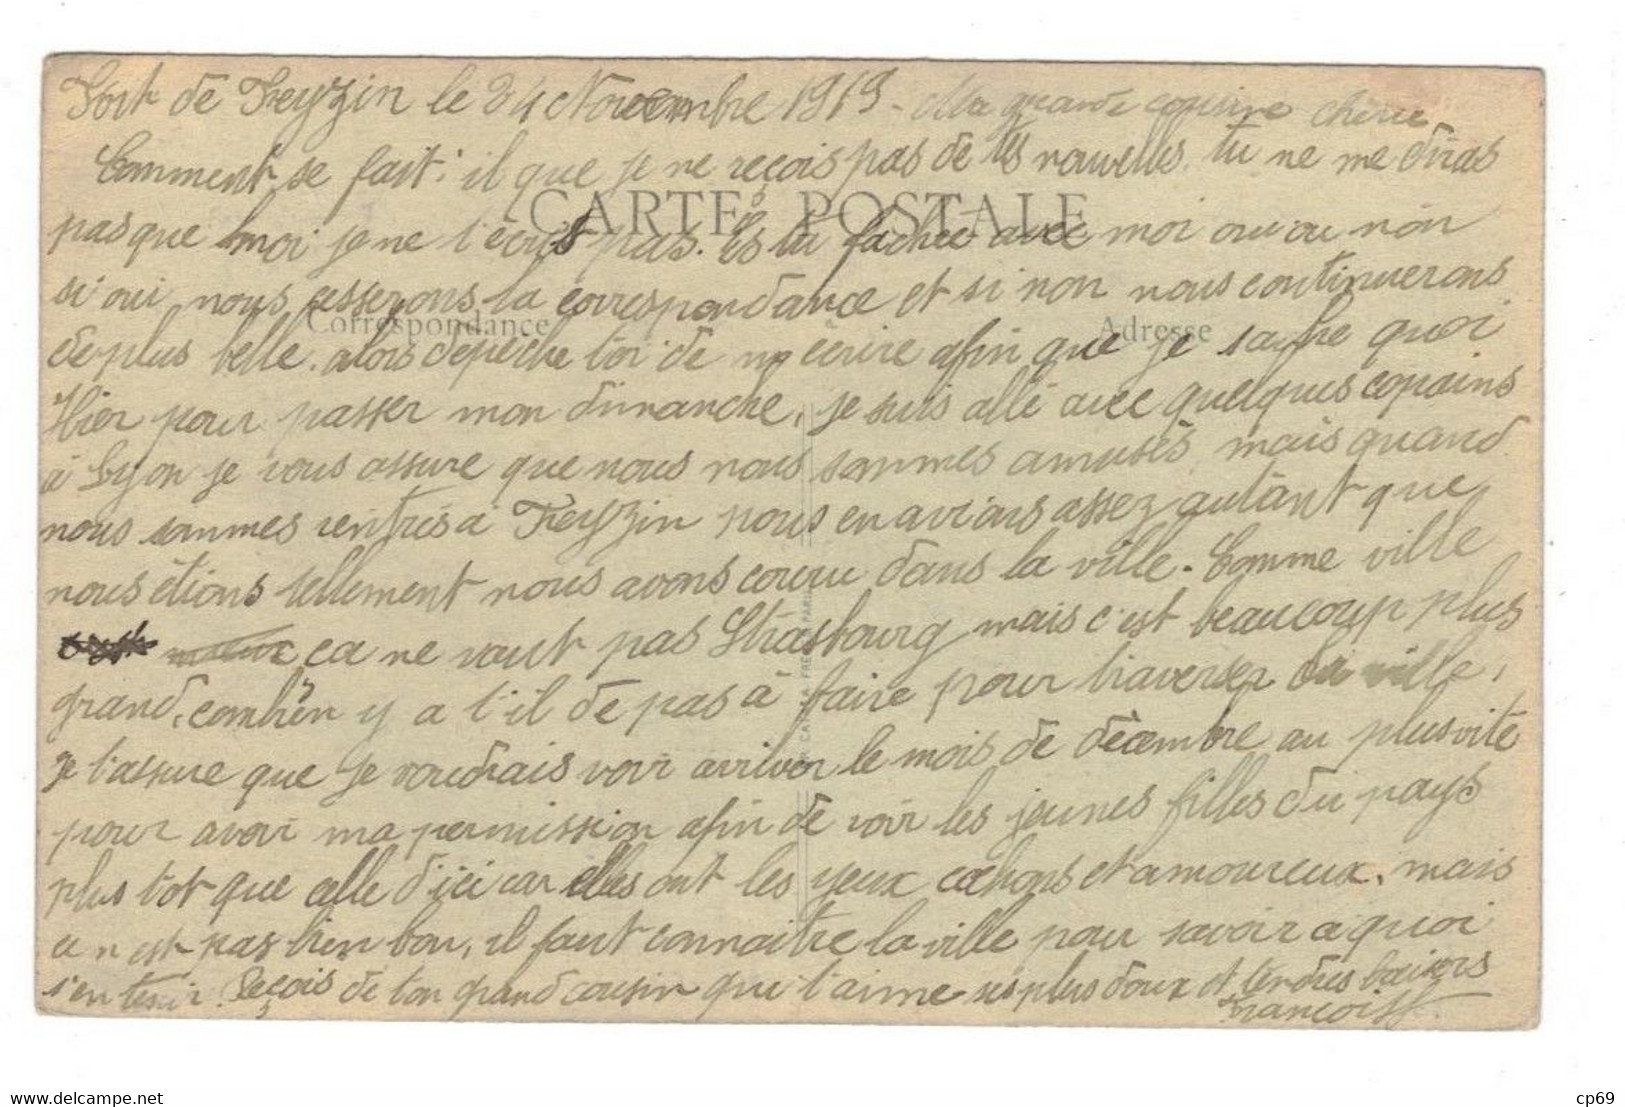 Fort de Feyzin le 24 Novembre 1919 - Ma grande cousine chérie
Comment se fait-il que je ne reçois pas de tes nouvelles. tu ne me diras
CARTE POSTALE
pas que moi je ne t'écris pas. Es tu fachée avec moi oui ou non
si oui nous cesserons la correspondance et si non nous continuerons
Correspondance
Adresse
de plus belle. alors dépèche toi de m'écrire afin que je sache quoi
Hier pour passer mon dimanche, je suis allé avec quelques copains
à Lyon je vous assure que nous nous sommes amusés, mais quand
nous sommes rentrés à Feyzin nous en avions assez autant que
nous étions tellement nous avons couru dans la ville. Comme ville
ça ne vaut pas Strasbourg mais c'est beaucoup plus
grand, combien y a t'il de pas à faire pour traverser la ville,
je t'assure que je voudrais voir arriver le mois de décembre au plus vite
pour avoir ma permission afin de voir les jeunes filles du pays
plus tôt que celle d'ici car elles ont les yeux cochons et amoureux. mais
ce n'est pas bien bon, il faut connaitre la ville pour savoir a quoi
s'en tenir. Reçois de ton grand cousin qui t'aime ses plus doux et tendres baisers
François
Delcampe.net
cp69